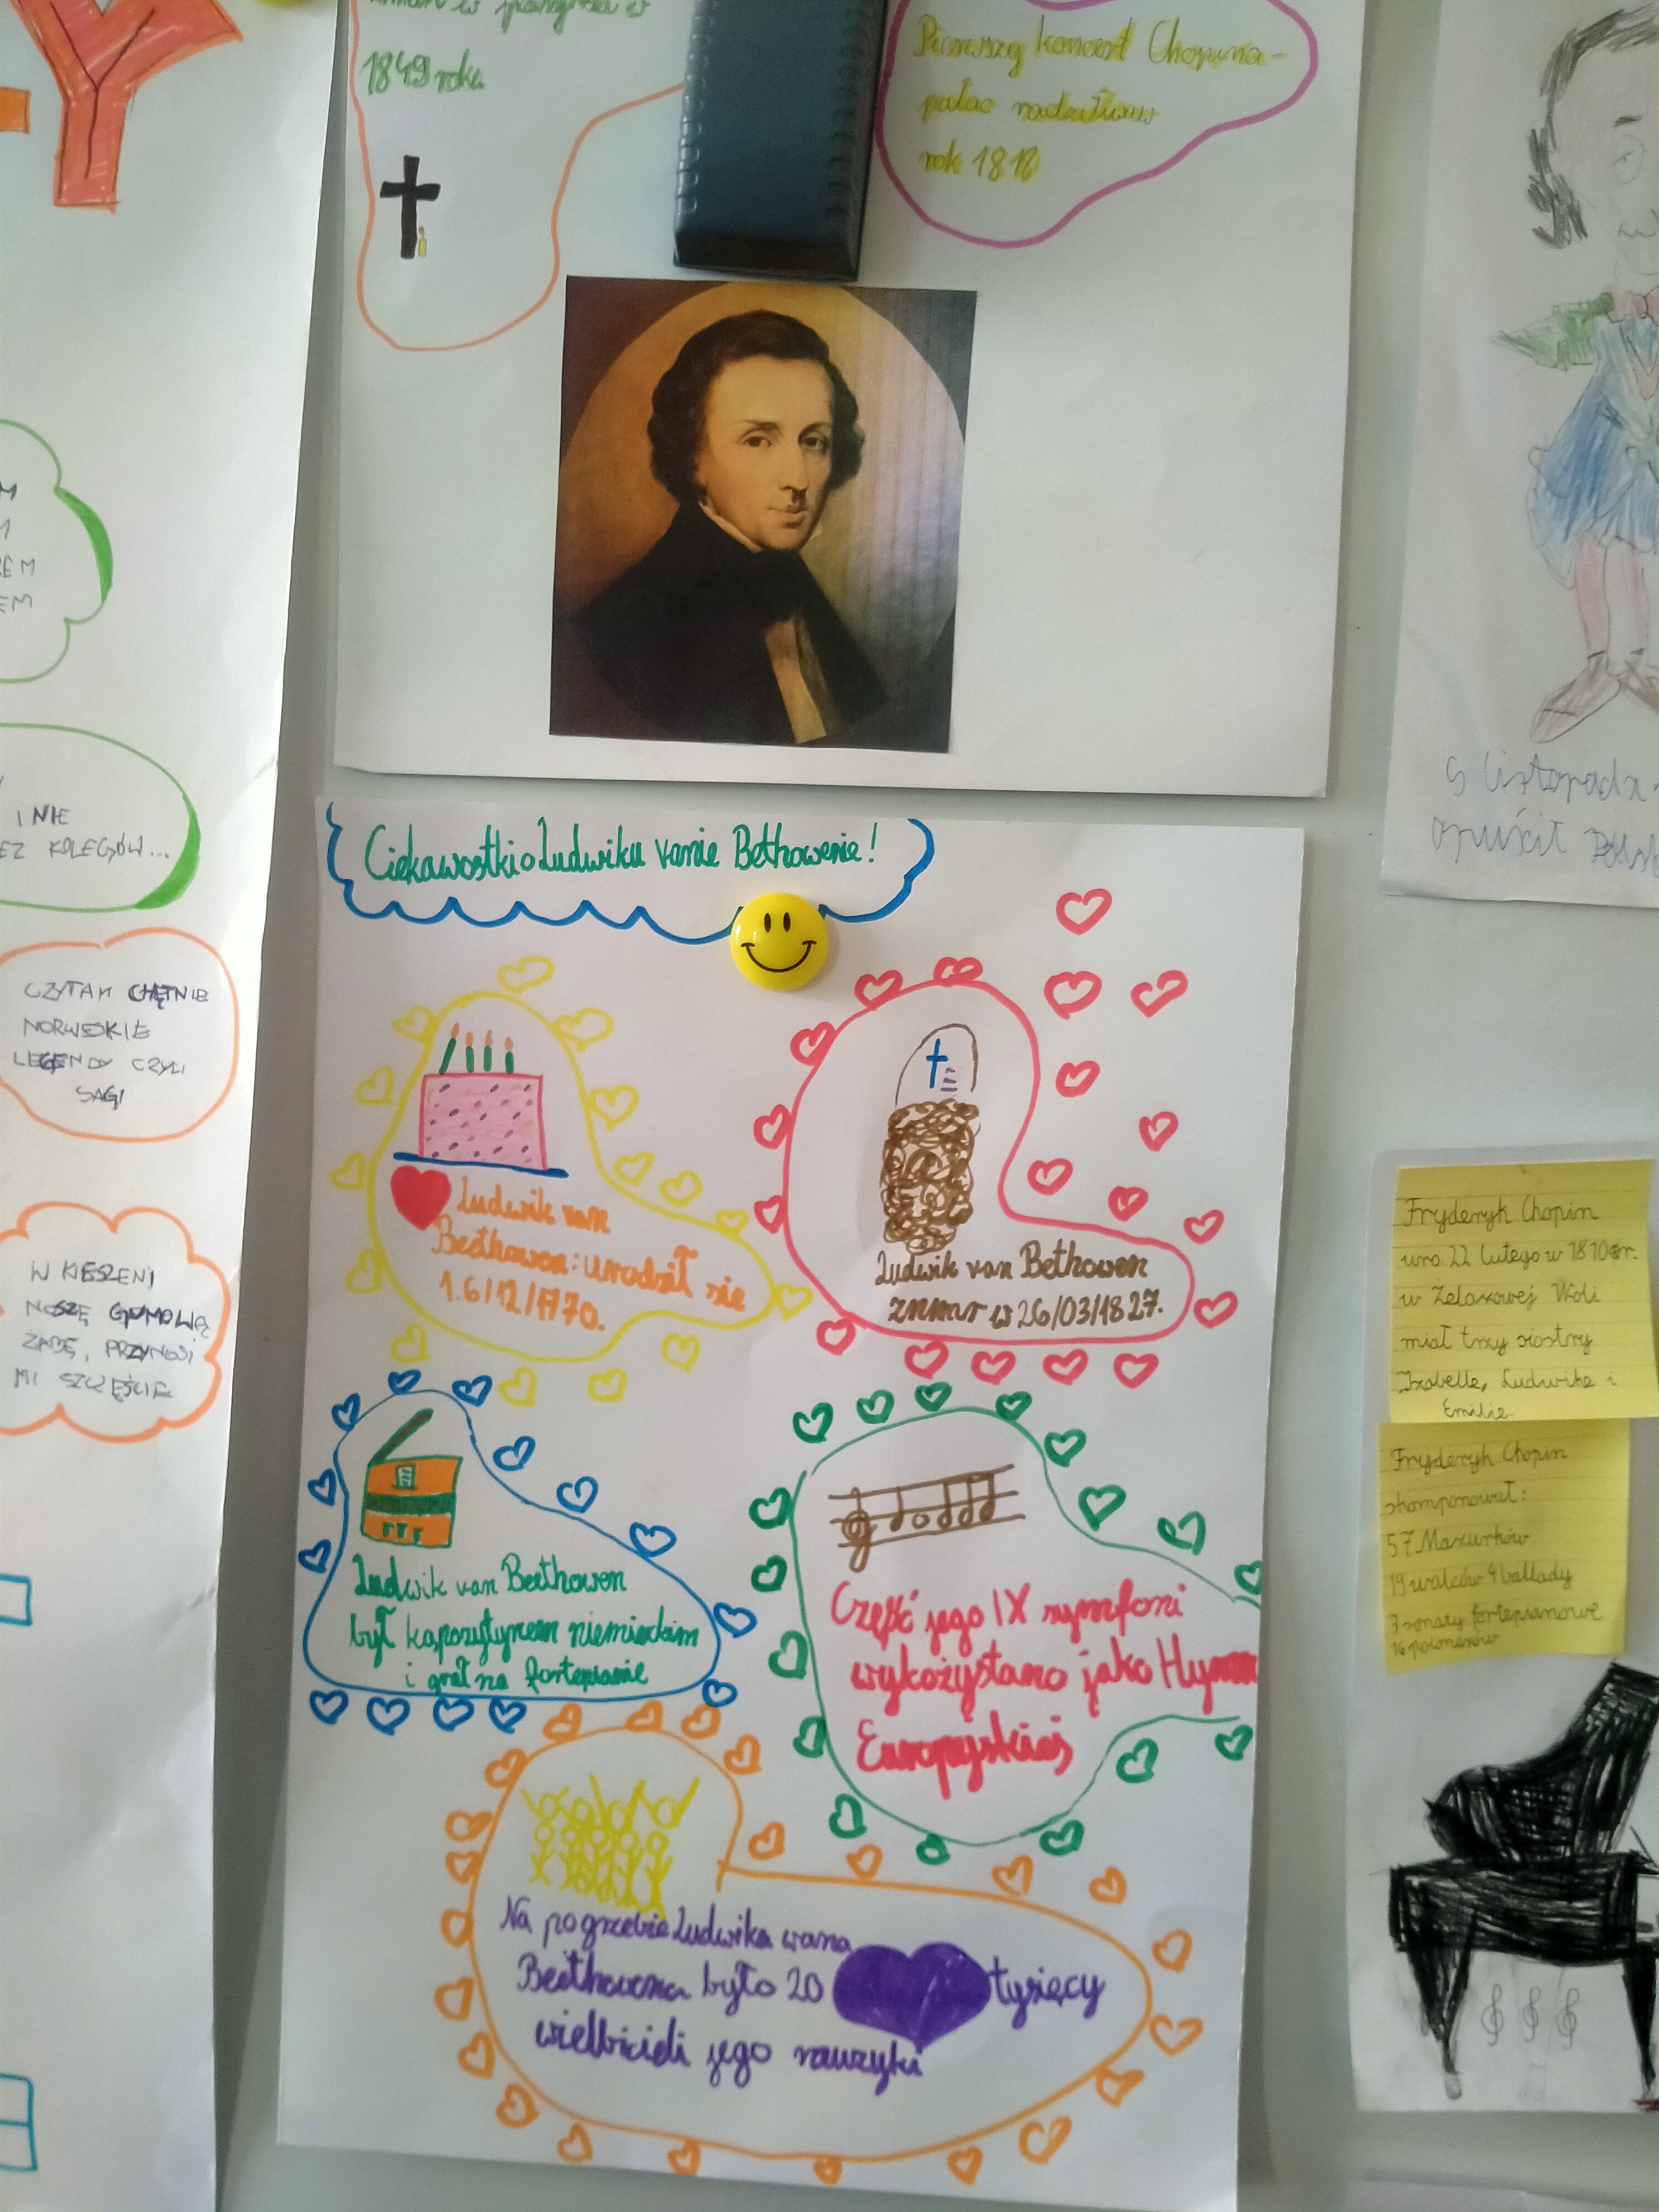 1849 roku
Pierwszy koncert Chopina-
pałac
rok 1818
I NIE
KOLEGÓW...
CZYTAM CHĘTNIE
NORWESKIE
LEGENDY CZYLI
SAGI
W KIESZENI
NOSZĘ GUMOWĄ
ŻABĘ, PRZYNOSI
MI SZCZĘŚCIE
Ciekawostki o Ludwiku vanie Bethowenie!
Ludwik van
Beethowen: urodził się
16/12/1770.
Ludwik van Bethowen
zmarł w 26/03/1827.
Ludwik van Beethowen
był kapozytynem niemieckim
i grał na fortepianie
Część jego IX symfoni
wykożystano jako Hymn
Europejskiej
Na pogrzebie Ludwika wana
Beethowena było 20 tysięcy
wielbicieli jego muzyki
5 listopada
opuścił
Fryderyk Chopin
uro 22 lutego w 1810 r.
w Żelazowej Woli
miał trzy siostry
Izabelle, Ludwike i
Emilie.
Fryderyk Chopin
skomponował:
57 Mazurków
19 walców 4 ballady
3 sonaty fortepianowe
16 polonezów